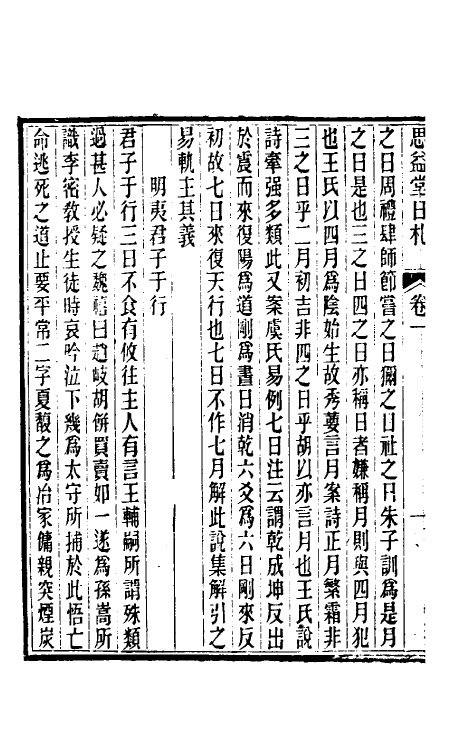 思益堂日札 卷一
之日周禮肆師節嘗之日獮之日社之日朱子訓爲是月
之日是也三之日四之日亦稱日者嫌稱月則與四月犯
也王氏以四月爲陰始生故秀葽言月案詩正月繁霜非
三之日乎二月初吉非四之日乎胡以亦言月也王氏說
詩牽强多類此又案虞氏易例七日注云謂乾成坤反出
於震而來復陽爲道剛爲晝日消乾六爻爲六日剛來反
初故七日來復天行也七日不作七月解此說集解引之
易軌主其義
明夷君子于行
君子于行三日不食有攸往主人有言王輔嗣所謂殊類
過甚人必疑之魏禧曰趙岐胡餅買賣如一遂爲孫嵩所
識李密教授生徒時哀吟泣下幾爲太守所捕於此悟亡
命逃死之道止要平常二字夏馥之爲冶家傭親突煙炭